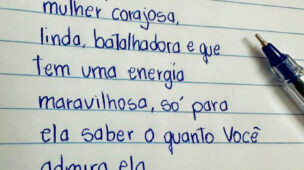 mulher corajosa,
linda, batalhadora e que
tem uma energia
maravilhosa, só para
ela saber o quanto você
admira ela